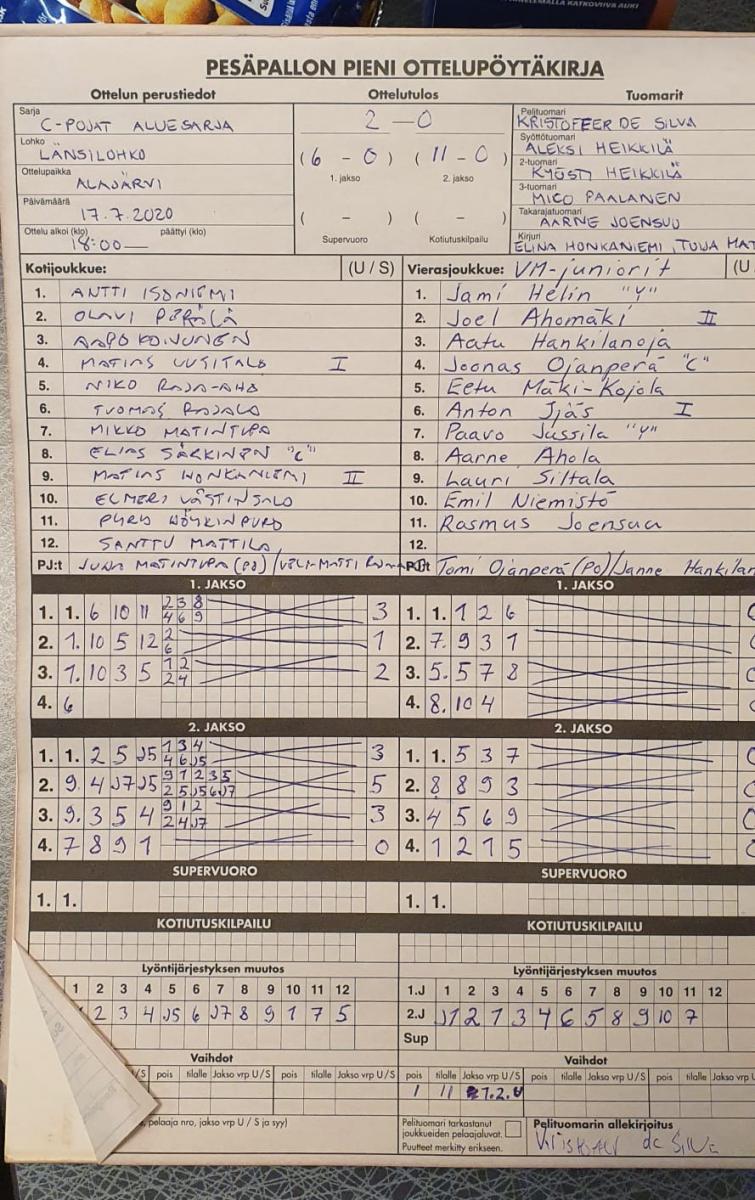 PESÄPALLON PIENI OTTELUPÖYTÄKIRJA
Ottelun perustiedot
Ottelutulos
Tuomarit
Sarja
C-POJAT ALUESARJA
Lohko
LÄNSILOHKO
Ottelupaikka
ALAJÄRVI
Päivämäärä
17.7.2020
Ottelu alkoi (klo) päättyi (klo)
18:00
2 – 0
(6 – 0) (11 – 0)
1. jakso 2. jakso
( – ) ( – )
Supervuoro Kotiutuskilpailu
Pelituomari
KRISTOFFER DE SILVA
Syöttötuomari
ALEKSI HEIKKILÄ
2-tuomari
KYÖSTI HEIKKILÄ
3-tuomari
MICO PAALANEN
Takarajatuomari
AARNE JOENSUU
Kirjuri
ELINA HONKANIEMI, TUIJA MAT
Kotijoukkue: (U / S)
1. ANTTI ISONIEMI
2. OLAVI PERÄLÄ
3. AAPO KOIVUNEN
4. MATIAS UUSITALO I
5. NIKO RAJA-AHO
6. TUOMAS RAJALA
7. MIKKO MATINTUPA
8. ELIAS SÄKKINEN "C"
9. MATIAS HONKANIEMI II
10. ELMERI VÄSTINSALO
11.
12. SANTTU MATTILA
PJ:t JUKA MATINTUPA (PJ) / VELI-MATTI
Vierasjoukkue: VM-juniorit (U
1. Jami Helin "Y"
2. Joel Ahomäki II
3. Aatu Hankilanoja
4. Joonas Ojanperä "C"
5. Eetu Mäki-Kojola
6. Anton Ijäs I
7. Paavo Jussila "Y"
8. Aarne Ahola
9. Lauri Siltala
10. Emil Niemistö
11. Rasmus Joensuu
12.
Tomi Ojanperä (PJ) / Janne Hankilan
1. JAKSO
1. 1. 6 10 11 2 3 8 4 6 9 3
2. 1. 10 5 12 2 6 1
3. 1. 10 3 5 1 2 2 4 2
4. 6
1. JAKSO
1. 1. 1 2 6
2. 7. 9 3 1
3. 5. 5 7 8
4. 8. 10 4
2. JAKSO
1. 1. 2 5 J5 1 3 4 4 6 J5 3
2. 9. 4 J7 J5 9 1 2 3 5 2 5 J5 6 J7 5
3. 9. 3 5 4 9 1 2 2 4 J7 3
4. 7 8 9 1 0
2. JAKSO
1. 1. 5 3 7
2. 8 8 9 3
3. 4 5 6 9
4. 1 2 1 5
SUPERVUORO
1. 1.
SUPERVUORO
1. 1.
KOTIUTUSKILPAILU
KOTIUTUSKILPAILU
Lyöntijärjestyksen muutos
1 2 3 4 5 6 7 8 9 10 11 12
2 3 4 J5 6 J7 8 9 1 7 5
Lyöntijärjestyksen muutos
1.J 1 2 3 4 5 6 7 8 9 10 11 12
2.J J1 2 1 3 4 6 5 8 9 10 7
Sup
Vaihdot
/S pois tilalle Jakso vrp U / S pois tilalle Jakso vrp U / S
Vaihdot
pois tilalle Jakso vrp U / S pois tilalle Jakso vrp U / S pois tilalle Jakso vrp U
1 11 1.2.U
, pelaaja nro, jakso vrp U / S ja syy)
Pelituomari tarkastanut
joukkueiden pelaajaluvat.
Puutteet merkitty erikseen.
Pelituomarin allekirjoitus